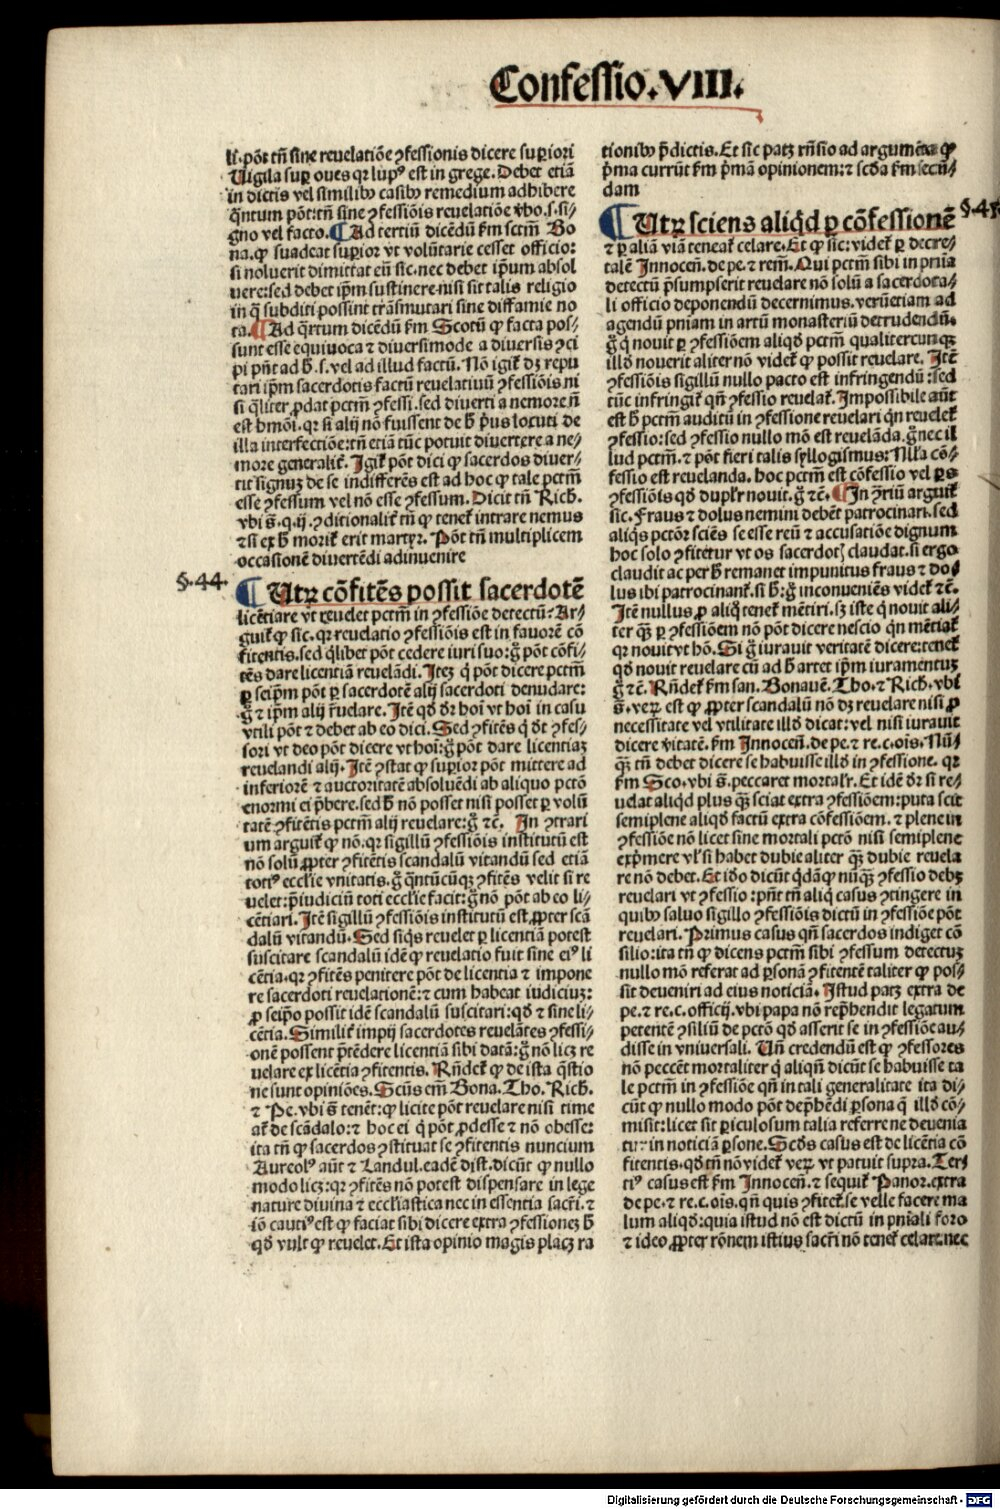 Confessio.VIII.
li. põt tñ sine reuelatiõe ꝯfessionis dicere suꝑiori
Uigila suꝑ oues qr lupꝰ est in grege. Debet etiã
in dictis vel similibꝫ casibꝫ remedium adhibere
q̃ntum põt: tñ sine ꝯfessiõis reuelatiõe ṽbo. s. si⸗
gno vel facto. ¶ Ad tertiũ dicẽdũ fm sctm̃ Bo
na. ꝙ suadeat suꝑior vt volũtarie cesset officio:
si noluerit dimittat eũ sic. nec debet ip̃um absol
uere: sed debet ip̃m sustinere nisi sit talis religio
in q̃ subditi possint trãsmutari sine diffamie no
ta. ¶ Ad q̃rtum dicẽdũ fm Scotũ ꝙ facta pos⸗
sunt esse equiuoca ⁊ diuersimode a diuersis ꝯci
pi pñt ad h̃. s. vel ad illud factũ. Nõ igit̃ dꝫ repu
tari ip̃m sacerdotis factũ reuelatiuũ ꝯfessiõis ni
si q̃liter ꝓdat pctm̃ ꝯfessi. sed diuerti a nemore ñ
est hmõi. qr si alij nõ fuissent de h̃ p̃us locuti de
illa interfectiõe: tñ etiã tũc potuit diuertere a ne⸗
more generalit̃. Igit̃ põt dici ꝙ sacerdos diuer⸗
tit signuꝫ de se indifferẽs est ad hoc ꝙ tale pctm̃
esse ꝯfessum vel nõ esse ꝯfessum. Dicit tñ Rich.
vbi s̃. q. ij. ꝯditionalit̃ tñ ꝙ tenet̃ intrare nemus
⁊ si ex h̃ morit̃ erit martyr. Põt tñ multiplicem
occasionẽ diuertẽdi adinuenire
§.44.
¶ Utrꝫ cõfitẽs possit sacerdotẽ
licẽtiare vt reuelet pctm̃ in ꝯfessiõe detectũ: Ar⸗
guit̃ ꝙ sic. qr reuelatio ꝯfessiõis est in fauorẽ cõ
fitentis. sed q̃libet põt cedere iuri suo: g̃ põt cõfi⸗
tẽs dare licentiã reuelãdi. Iteꝫ q̃ põt dicere pctm̃
ꝑ seip̃m põt ꝑ sacerdotẽ alij sacerdoti denudare:
g̃ ⁊ ip̃m alij r̃uelare. Itẽ qđ đr hoĩ vt hoĩ in casu
vtili põt ⁊ debet ab eo dici. Sed ꝯfitẽs q̃ đt ꝯfes⸗
sori vt deo põt dicere vt hoi: g̃ põt dare licentiaꝫ
reuelandi alij. Itẽ ꝯstat ꝙ suꝑior põt mittere ad
inferiorẽ ⁊ auctoritatẽ absoluẽdi ab aliquo pctõ
enormi ei p̃bere. sed h̃ nõ posset nisi posset ꝑ volũ
tatẽ ꝯfitẽtis pctm̃ alij reuelare: g̃ ⁊c̃. In ꝯtrari
um arguit̃ ꝙ nõ. qr sigillũ ꝯfessiõis institutũ est
nõ solũ ꝓpter ꝯfitẽtis scandalũ vitandũ sed etiã
totiꝰ eccl̃ie vnitatis. g̃ q̃ntũcũqꝫ ꝯfitẽs velit si re
uelet: p̃iudiciũ toti eccl̃ie facit: g̃ nõ põt ab eo li⸗
cẽtiari. Itẽ sigillũ ꝯfessiõis institutũ est ꝓpter scã
dalũ vitandũ. Sed siq̃s reuelet ꝑ licentiã potest
suscitare scandalũ idẽ ꝙ reuelatio fuit sine eiꝰ li
cẽtia. qr ꝯfitẽs penitere põt de licentia ⁊ impone
re sacerdoti reuelationẽ: ⁊ cum habeat iudiciuꝫ:
ꝓ seip̃o possit idẽ scandalũ suscitari: qđ ⁊ sine li⸗
cẽtia. Similit̃ impij sacerdotes reuelãtes ꝯfessi⸗
onẽ possent p̃tẽdere licentiã sibi datã: g̃ nõ licꝫ re
uelare ex licẽtia ꝯfitentis. Rñdet̃ ꝙ de ista q̃stio
ne sunt opiniões. Sctũs em̃ Bona. Tho. Rich.
⁊ Pe. vbi s̃ tenẽt: ꝙ licite põt reuelare nisi time
at̃ de scãdalo: ⁊ hoc ei q̃ põt ꝓdesse ⁊ nõ obesse:
ita tñ ꝙ sacerdos ꝯstituat se ꝯfitentis nuncium
Aureolꝰ aũt ⁊ Landul. eadẽ dist. dicũt ꝙ nullo
modo licꝫ: qr ꝯfitẽs nõ potest dispensare in lege
nature diuina ⁊ eccl̃iastica nec in essentia sacr̃i. ⁊
iõ cautiꝰ est ꝙ faciat sibi dicere extra ꝯfessioneꝫ h̃
qđ vult ꝙ reuelet. Et ista opinio magis placꝫ ra
tionibꝫ p̃dictis. Et sic patꝫ rñsio ad argumẽta ꝙ
p̃ma currũt fm p̃mã opinionem: ⁊ scđa fm secũ⸗
dam
§.45
¶ Utrꝫ sciens aliq̃d ꝑ cõfessionẽ
⁊ ꝑ aliã viã teneat̃ celare. Et ꝙ sic: videt̃ ꝑ decre⸗
talẽ Innocen̄. de pe. ⁊ rem̃. Qui pctm̃ sibi in pñia
detectũ p̃sumpserit reuelare nõ solũ a sacerdota⸗
li officio deponendũ decernimus. verũetiam ad
agendũ pniam in artũ monasteriũ detrudendũ.
g̃ q̃ nouit ꝑ ꝯfessionẽ aliqđ pctm̃ qualitercunqꝫ
illđ nouerit aliter nõ videt̃ ꝙ possit reuelare. Itẽ
ꝯfessiõis sigillũ nullo pacto est infringendũ: sed
tũc infringit̃ qñ ꝯfessio reuelat̃. Impossibile aũt
est h̃ pctm̃ auditũ in ꝯfessione reuelari q̃n reuelet̃
ꝯfessio: sed ꝯfessio nullo mõ est reuelãda. g̃ nec il
lud pctm̃. ⁊ põt fieri talis syllogismus: Nll̃a cõ⸗
fessio est reuelanda. hoc pctm̃ est cõfessio vel ꝑs
ꝯfessiõis qđ duplr̃ nouit. g̃ ⁊c̃. ¶ In ꝯ̃riũ arguit̃
sic. Fraus ⁊ dolus nemini debẽt patrocinari. sed
aliq̃s pctõr sciẽs se esse reũ ⁊ accusatiõe dignum
hoc solo ꝯfitẽtur vt os sacerdotꝭ claudat. si ergo
claudit ac per h̃ remanet impunitus fraus ⁊ do⸗
lus ibi patrocinant̃. si h̃: g̃ inconueniẽs videt̃ ⁊c̃.
Itẽ nullus ꝓ aliq̃ tenet̃ mẽtiri. sꝫ iste q̃ nouit ali⸗
ter q̃ꝫ ꝑ ꝯfessiõem nõ põt dicere nescio q̃n mẽtiat̃
qr nouit vt hõ. Si g̃ iurauit veritatẽ dicere: tenet̃
qđ nouit reuelare cũ ad h̃ artet ip̃m iuramentuꝫ
g̃ ⁊c̃. Rñdet̃ fm san. Bonauẽ. Tho. ⁊ Rich. vbi
s̃. verꝫ est ꝙ ꝓpter scandalũ nõ dꝫ reuelare nisi ꝓ
necessitate vel vtilitate illđ dicat: vel nisi iurauit
dicere ṽitatẽ. fm Innocen̄. de pe. ⁊ re. c. oĩs. Nũ⸗
q̃ꝫ tñ debet dicere se habuisse illđ in ꝯfessione. qr
fm Sco. vbi s̃. peccaret mortalr̃. Et idẽ đr si re⸗
uelat aliqđ plus q̃ꝫ sciat extra ꝯfessiõem: puta scit
semiplene aliqđ factũ extra cõfessiõem. ⁊ plene in
ꝯfessiõe nõ licet sine mortali pctõ nisi semiplene
exp̃mere vl̃ si habet dubie aliter q̃ꝫ dubie reuela
re nõ debet. Et iđo dicũt q̃dãꝙ nũq̃ꝫ ꝯfessio debꝫ
reuelari vt ꝯfessio: pñt tñ aliq̃ casus ꝯtingere in
quibꝫ saluo sigillo ꝯfessiõis dictũ in ꝯfessiõe põt
reuelari. Primus casus qñ sacerdos indiget cõ
silio: ita tñ ꝙ dicens pctm̃ sibi ꝯfessum detectuꝫ
nullo mõ referat ad ꝑsonã ꝯfitentẽ taliter ꝙ pos⸗
sit deueniri ad eius noticiã. Istud patꝫ extra de
pe. ⁊ re. c. officij. vbi papa nõ rep̃hendit legatum
petentẽ ꝯsiliũ de pctõ qđ asserit se in ꝯfessiõe au⸗
disse in vniuersali. Uñ credendũ est ꝙ ꝯfessores
nõ peccẽt mortaliter q̃ aliqũ dicũt se habuisse ta
le pctm̃ in ꝯfessiõe qñ in tali generalitate ita di⸗
cũt ꝙ nullo modo põt dep̃hẽdi ꝑsona q̃ illđ cõ⸗
misit: licet sit ꝑiculosum talia referre ne deuenia
tur in noticiã ꝑsone. Scđs casus est de licẽtia cõ
fitentis. qđ tñ nõ videt̃ verꝫ vt patuit supra. Ter⸗
tiꝰ casus est fm Innocen̄. ⁊ sequit̃ Panor. extra
de pe. ⁊ re. c. oĩs. qñ quis ꝯfitet̃ se velle facere ma
lum aliqđ: quia istud nõ est dictũ in pnĩali foro
⁊ ideo ꝓpter rõnem istius sacr̃i nõ tenet̃ celare. nec
Digitalisierung gefördert durch die Deutsche Forschungsgemeinschaft - DFG